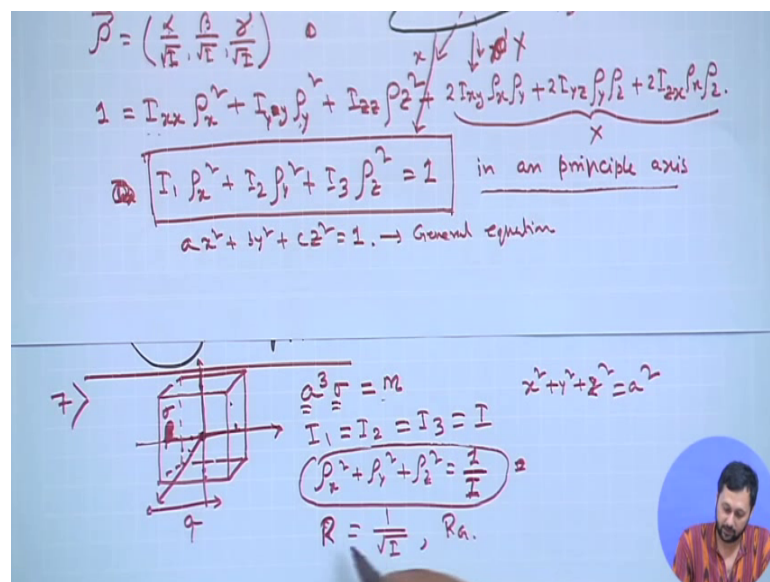 ρ⃗ = (α/√I, β/√I, γ/√I)
x X
1 = Ixx ρx² + Iyy ρy² + Izz ρz² + 2Ixy ρx ρy + 2Iyz ρy ρz + 2Izx ρx ρz.
X
I₁ ρx² + I₂ ρy² + I₃ ρz² = 1 in an principle axis
ax² + by² + cz² = 1. → General equation
7> a³σ = m x² + y² + z² = a²
σ
I₁ = I₂ = I₃ = I
ρx² + ρy² + ρz² = 1/I
a
R = 1/√I, Ra.